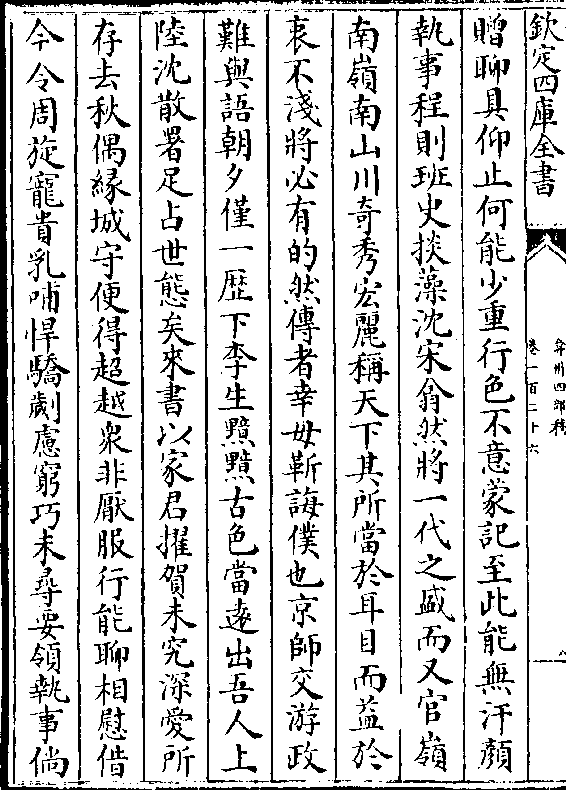 欽定四庫全書
弇州四部稿
卷一百二十六
八
贈聊具仰止何能少重行色不意蒙記至此能無汗顏
執事程則班史掞藻沈宋翁然將一代之盛而又官嶺
南嶺南山川奇秀宏麗稱天下其所當於耳目而益於
衷不淺將必有的然傳者幸毋靳誨僕也京師交游政
難與語朝夕僅一歴下李生黯黯古色當遠出吾人上
陸沈散署足占世態矣來書以家君擢賀未究深愛所
存去秋偶緣城守便得超越衆非厭服行能聊相慰借
今令周旋寵貴乳哺悍驕劌慮窮巧未尋要領執事倘